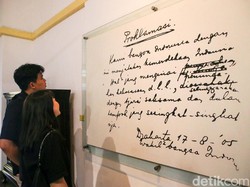 Proklamasi.
Kami bangsa Indonesia dengan
ini menjatakan kemerdekaan Indonesia
Hal² yang mengenai
kekoeasaan d.l.l.,
dengan tjara saksama dan dalam
tempoh yang sesingkat-singkat
nja.
Djakarta 17 - 8 - '05
Wakil² bangsa Indon
detikcom